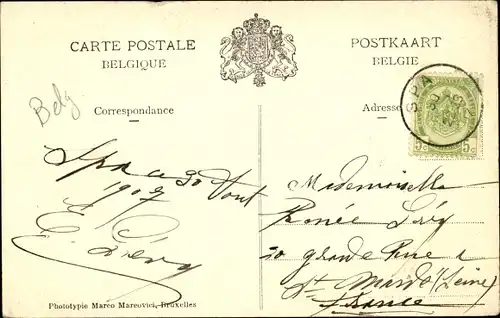 CARTE POSTALE
BELGIQUE
POSTKAART
BELGIE
Belg
Correspondance
Adresse
SPA
5c 5c
Spa 30 Août
1907
E. Lévy
Mademoiselle
Renée Lévy
20 grande Rue
St Mandé (Seine)
France
Phototypie Marco Marcovici, Bruxelles